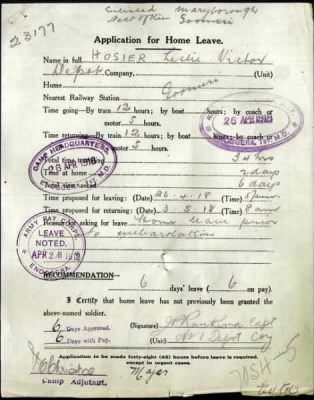 Enlisted Maryborough
Next of Kin Goomeri
23177
Application for Home Leave.
Name in full HOSIER Leslie Victor
Depot Company, (Unit)
Home Goomeri
Nearest Railway Station
Time going—By train 12 hours; by boat hours; by coach or
motor 5 hours.
26 APR 1918
ENOGGERA, 1st M.D.
Time returning—By train 12 hours; by boat hours; by coach or
motor 5 hours.
CAMP HEADQUARTERS
26 APR 1918
Total time travelling 34 hrs
Time at home 2 days
Total time asked 6 days
Time proposed for leaving: (Date) 26.4.18 (Time)
Time proposed for returning: (Date) 3.5.18 (Time) 8 am
Reason for asking for leave Home leave prior
to embarkation
ARMY PAY CORPS
LEAVE
NOTED.
APR 26 1918
ENOGGERA
RECOMMENDATION
6 days' leave ( 6 on pay).
I Certify that home leave has not previously been granted the
above-named soldier.
6 Days Approved.
6 Days with Pay.
(Signature) Capt
No 1 Depot Coy
Application to be made forty-eight (48) hours before leave is required.
except in urgent cases.
Major
Camp Adjutant.